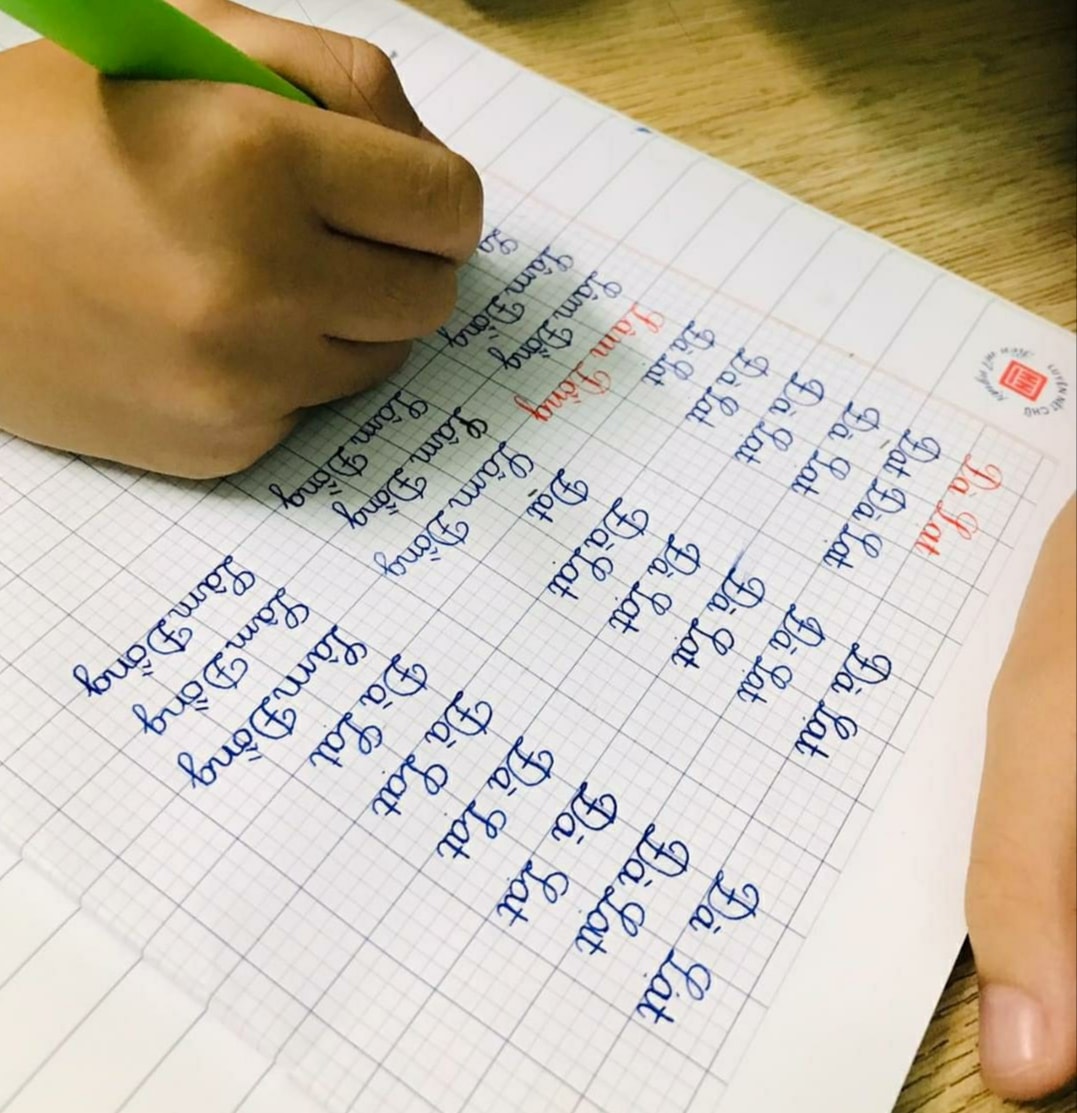 LUYỆN NÉT CHỮ
Đà Lạt Đà Lạt Đà Lạt
Đạt Đà Lạt Đà Lạt Đà Lạt
Đà Lạt Đà Lạt Đà Lạt
Đà Lạt Đà Lạt Đà Lạt
Đà Lạt Đà Lạt Đà Lạt
Đà Lạt Đạt Đà Lạt
Lâm Đồng Lâm Đồng Lâm Đồng
Lâm Đồng Lâm Đồng Lâm Đồng
Lâm Đồng Lâm Đồng Lâm Đồng